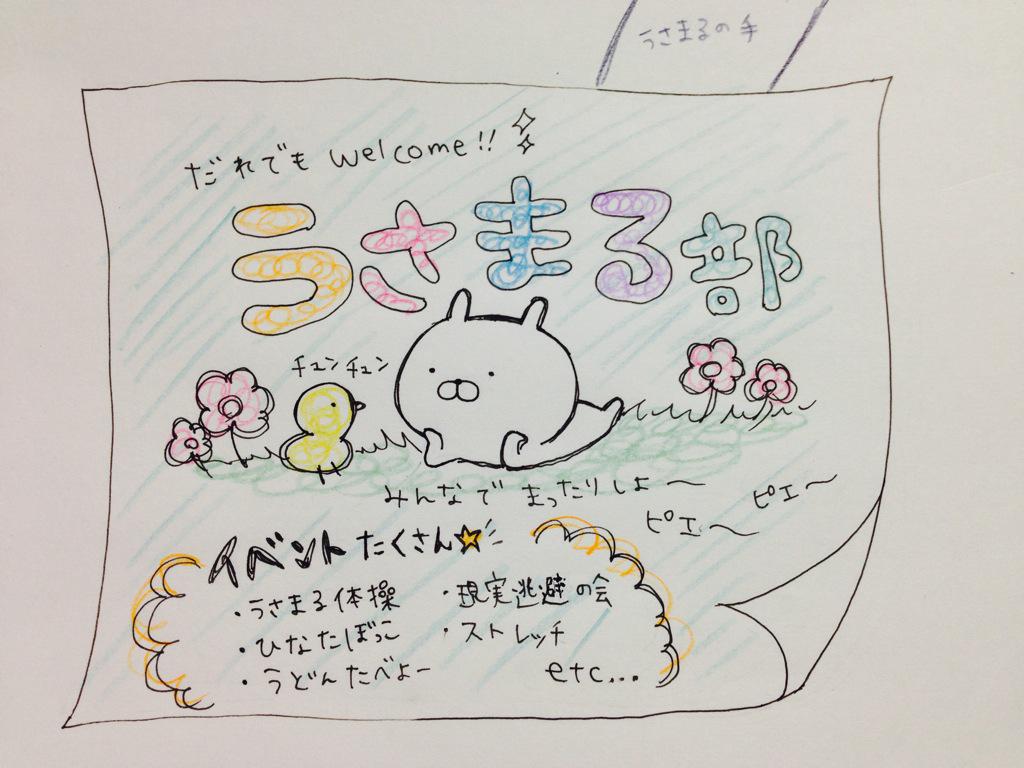 うさまるの手
だれでも welcome!!
うさまる部
チュンチュン
みんなで まったりしよ〜
ピエ〜
ピエ〜
イベントたくさん☆
・うさまる体操
・ひなたぼっこ
・うどんたべよー
・現実逃避の会
・ストレッチ
etc...